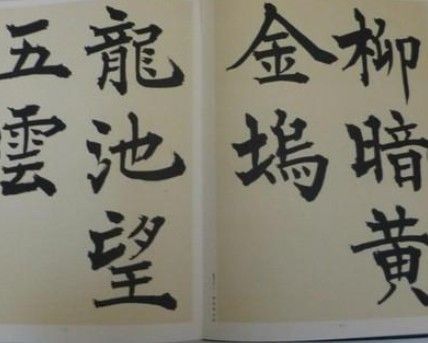 柳暗黄
金塢
龍池望
五雲